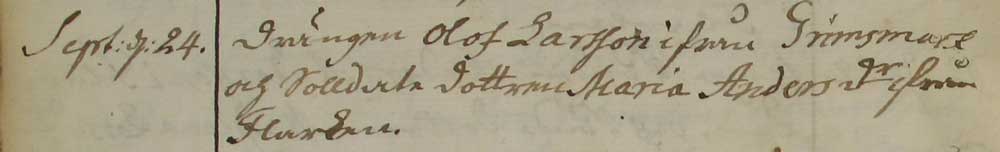 Sept: d: 24. Drängen Olof Larsson ifrån Grimsmark
och Solldate dottren Maria Anders dr ifrån
Flarken.